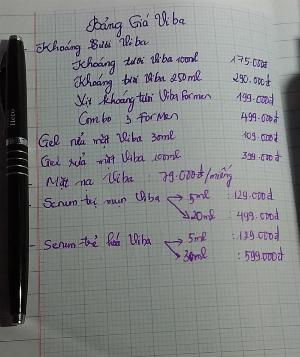 Bảng Giá Viba
Khoáng tươi Viba
Khoáng tươi Viba 100ml 175.000đ
Khoáng tươi Viba 250ml 290.000đ
Xịt khoáng tươi Viba Formen 199.000đ
Combo 3 Formen 499.000đ
Gel rửa mặt Viba 30ml 109.000đ
Gel rửa mặt Viba 100ml 399.000đ
Mặt nạ Viba : 79.000đ/miếng
Serum trị mụn Viba 5ml : 129.000đ
20ml : 499.000đ
Serum trẻ hoá Viba 5ml : 139.000đ
30ml : 599.000đ